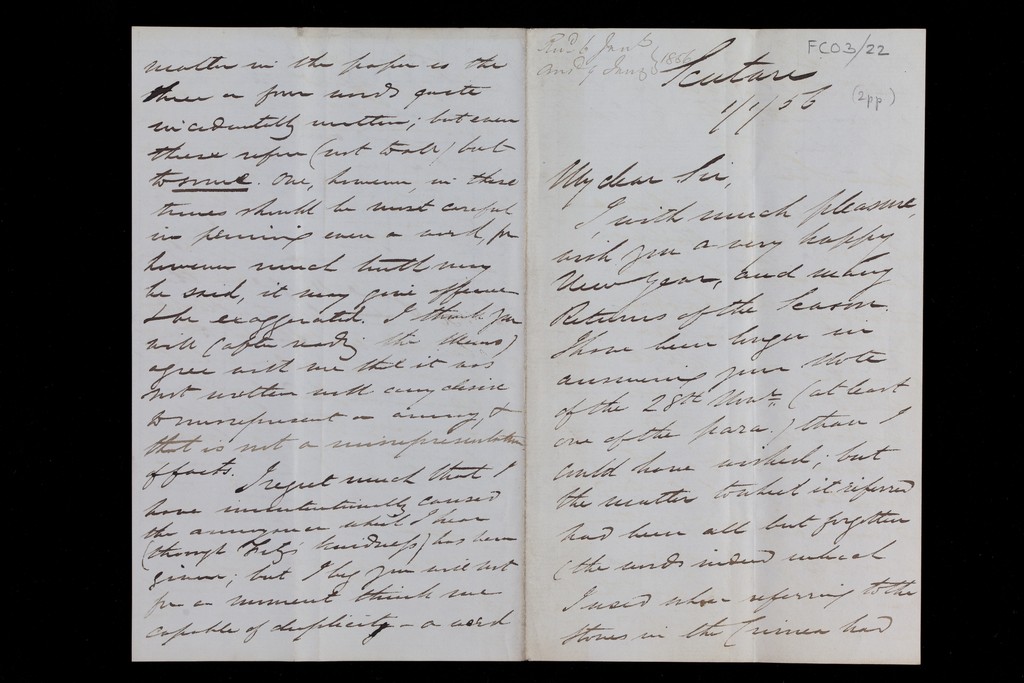 Rec'd 6 Jan'y
Ans'd 9 Jan'y 1856
FCO3/22
(2pp)
Scutari
1/1/56
My dear Sir,
I, with much pleasure,
wish you a very happy
New Year, and many
Returns of the Season.
I have been longer in
answering your Note
of the 28th (at least
one of the para.) than I
could have wished; but
the matter to which it referred
had been all but forgotten
(the words indeed which
I used when referring to the
stores in the Crimea had
matter in the paper is the
three or four words quite
incidentally written; but even
these refer (not to all) but
to some. One, however, in these
times should be most careful
in penning even a word, for
however much truth may
be said, it may give offence
& be exaggerated. I think you
will (after reading the )
agree with me that it was
not written with any desire
to misrepresent or annoy, &
that is not a misrepresentation
of facts. I regret much that I
have unintentionally caused
the annoyance which I hear
(through kindness) has been
given; but I beg you will not
for a moment think me
capable of duplicity - a word